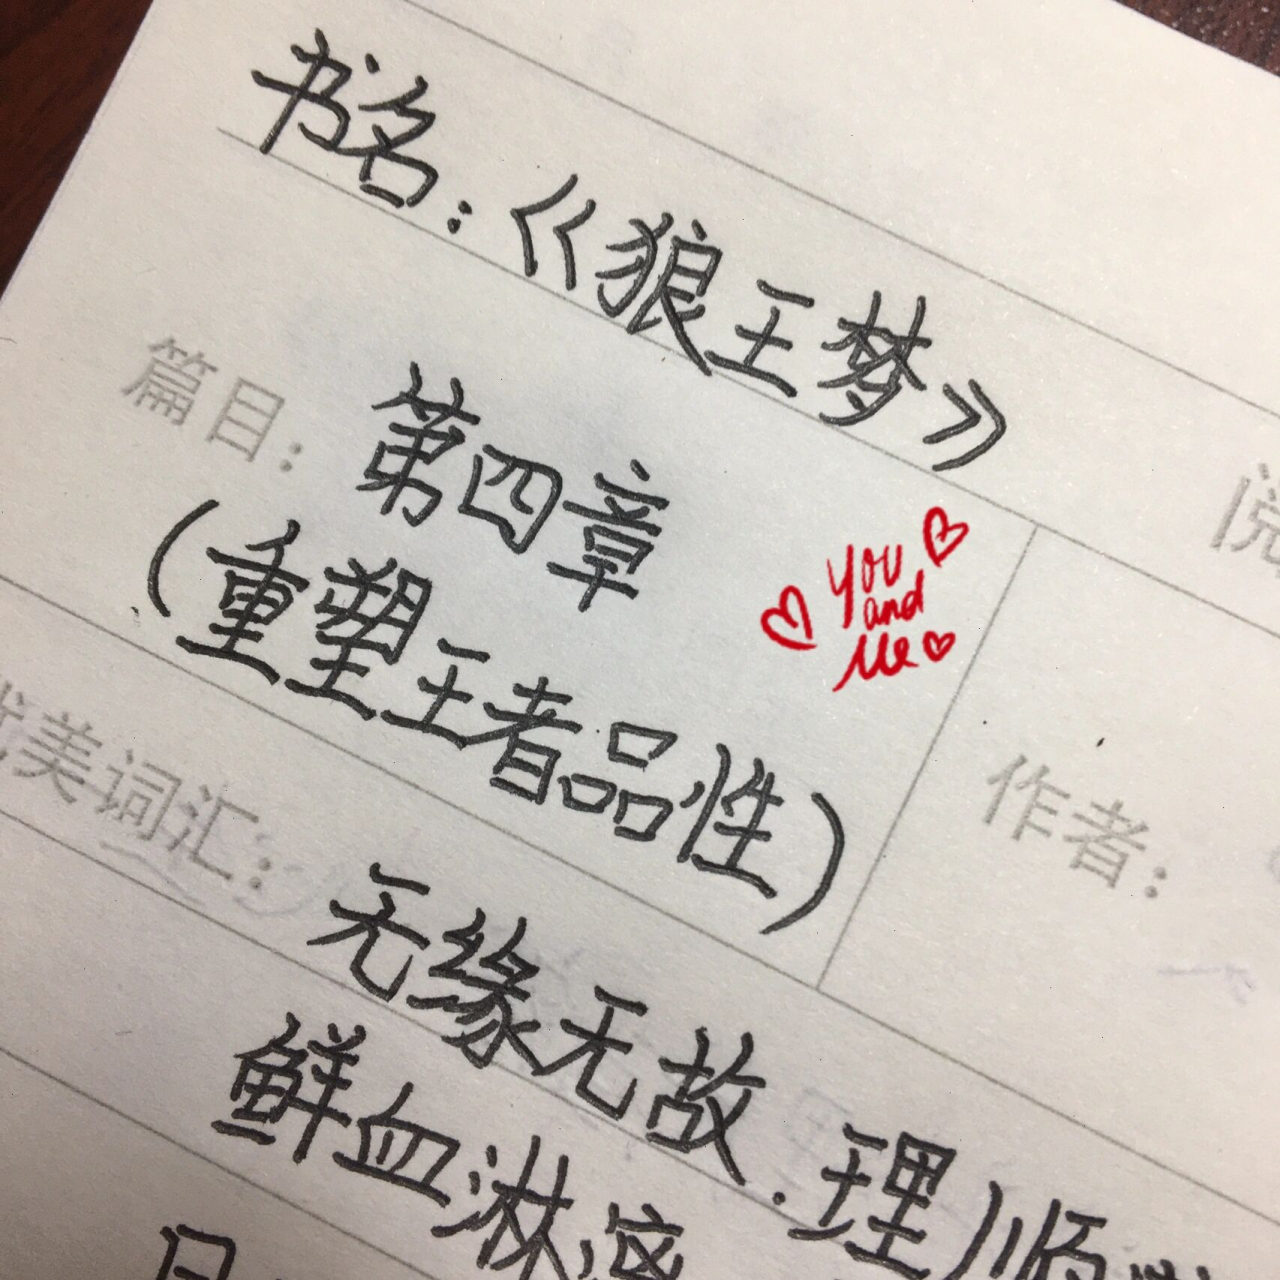 书名：《狼王梦》
阅
篇目：第四章
（重塑王者品性）
You
and
Me
作者：
优美词汇：无缘无故．理顺
鲜血淋漓